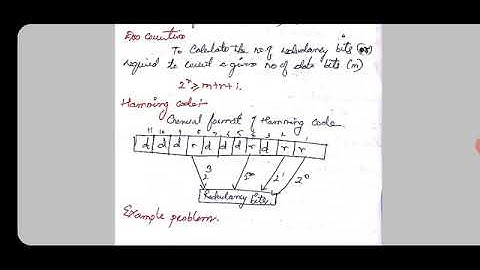 To Calculate the no of redundancy bits (r)
required to correct a given no of data bits (m)
2^r ≥ m+r+1.
Hamming code:-
General format of Hamming code
11 10 9 8 7 6 5 4 3 2 1
d d d r d d d r d r r
2^3 2^2 2^1 2^0
Redundancy bits
Example problem.